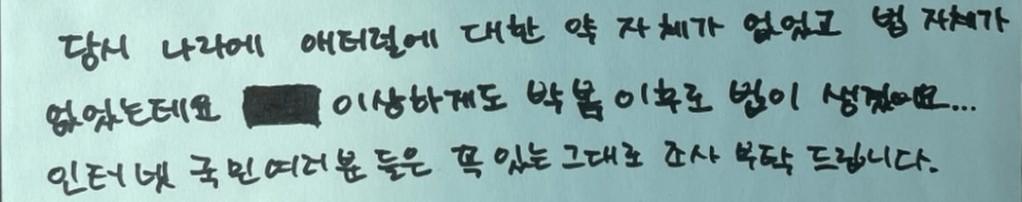 당시 나라에 애터럴에 대한 약 자체가 없었고 법 자체가
없었는데요 이상하게도 박봄이후로 법이 생겼어요...
인터넷 국민여러분 들은 꼭 있는그대로 조사 부탁 드립니다.